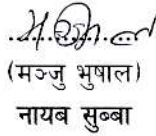 (मञ्जु भुषाल)
नायब सुब्बा